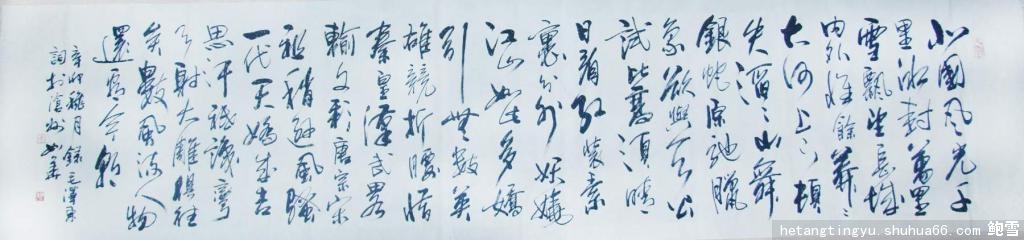 北國風光千
里冰封萬里
雪飄望長城
内外惟餘莽〻
大河上下頓
失滔〻山舞
銀蛇原馳臘
象欲與天公
試比高須晴
日看紅裝素
裹分外妖嬈
江山如此多嬌
引無數英
雄競折腰惜
秦皇漢武略
輸文彩唐宗宋
祖稍遜風騷
一代天驕成吉
思汗祇識彎
弓射大雕俱往
矣數風流人物
還看今朝
辛卯穐月錄毛澤東
詞於滄州
hetangtingyu.shuhua66.com 鲍雪